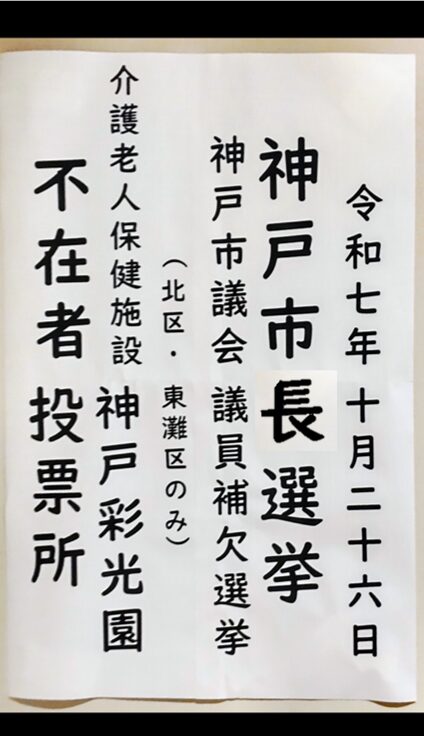 令和七年 十月二十六日
神戸市長選挙
神戸市議会 議員補欠選挙
（北区・東灘区のみ）
介護老人保健施設 神戸彩光園
不在者 投票所